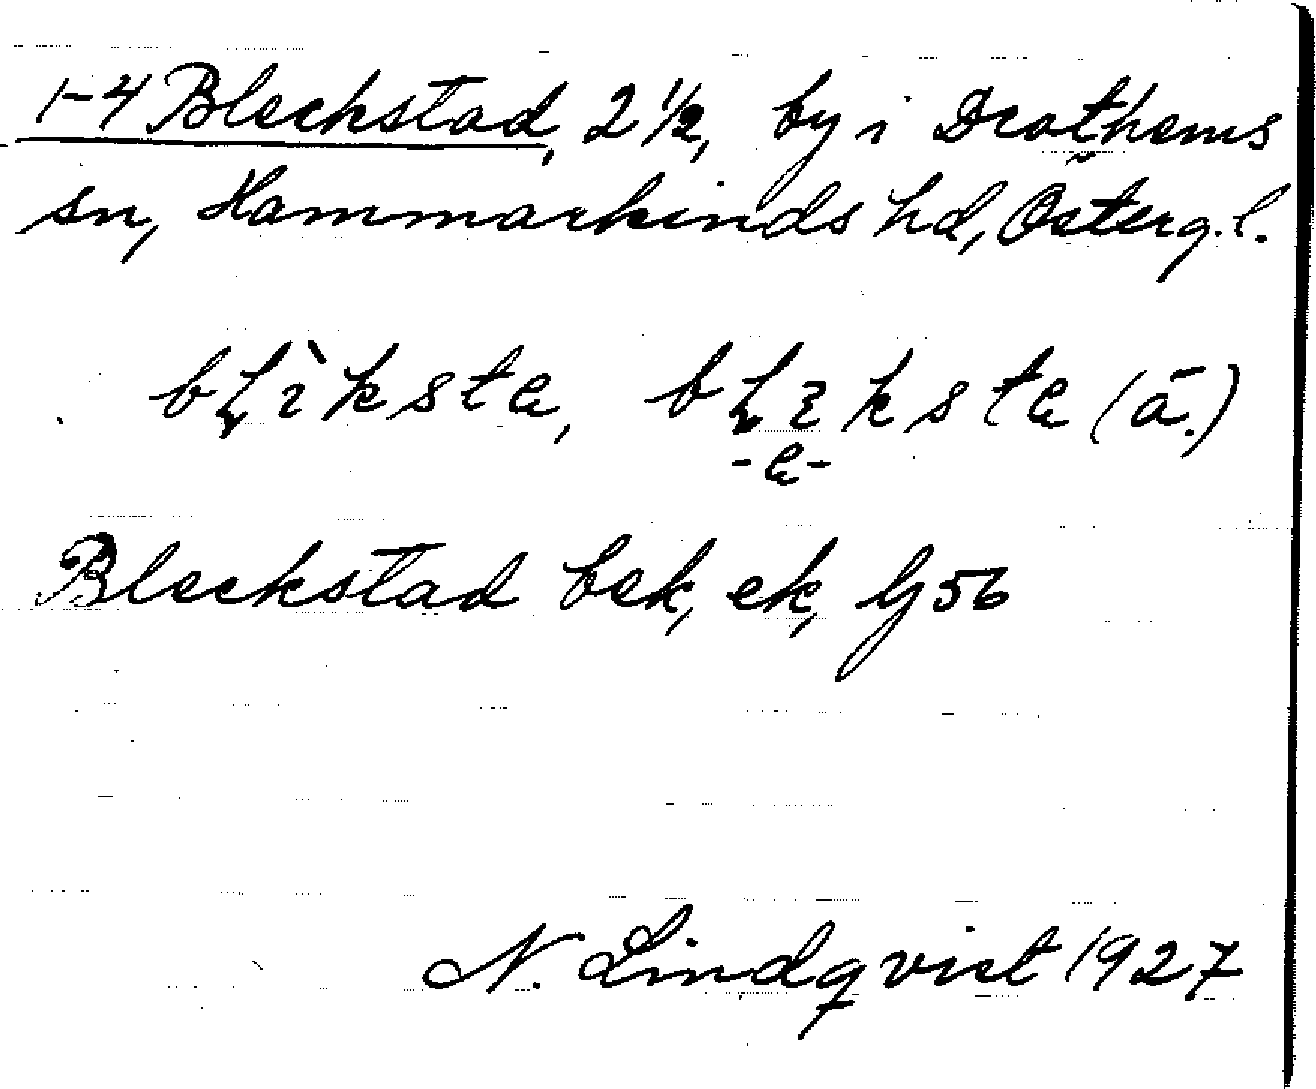 1-4 Bleckstad, 2 1/2, by i Drothems
sn, Hammarkinds hd, Österg. l.
bḷìksta, bḷɛksta (ä.)
-e-
Bleckstad bek, ek, Gj 56
N. Lindqvist 1927